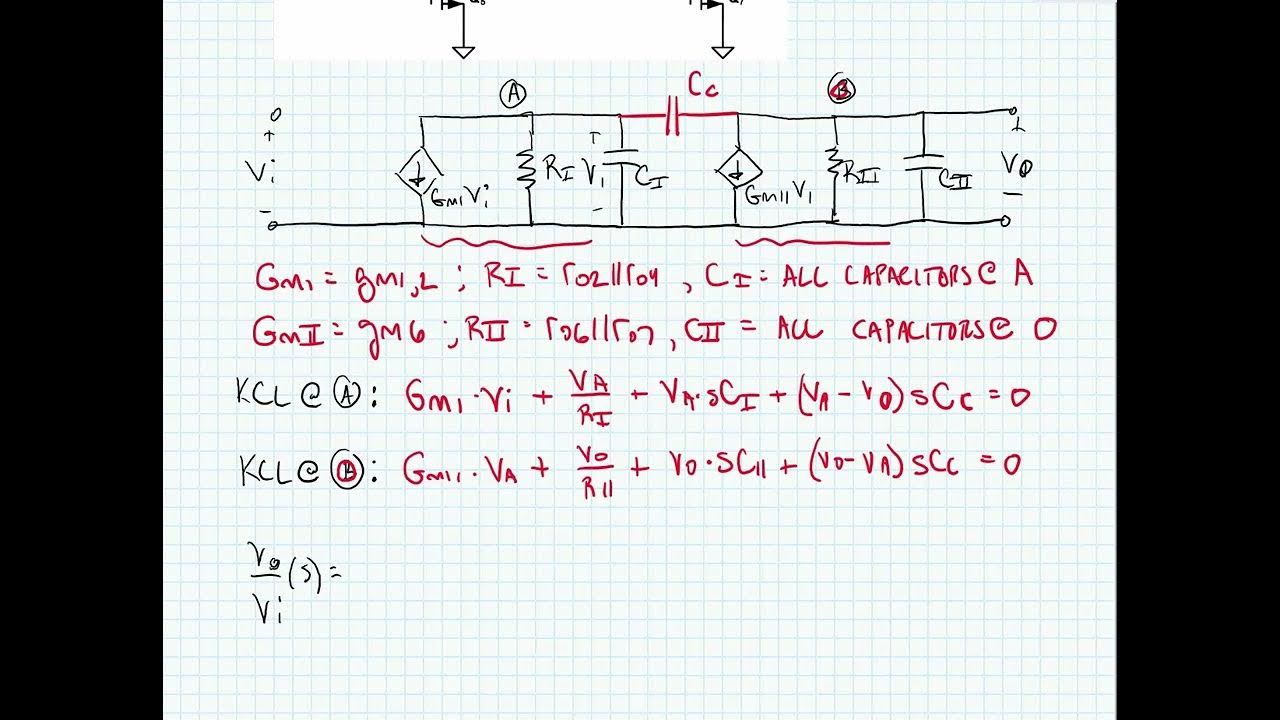 A Cc B
+ + +
Vi GmIVi RI V1 CI GmIIV1 RII CII Vo
- - -
GmI = gm1,2 ; RI = ro2||ro4 , CI = ALL CAPACITORS @ A
GmII = gm6 ; RII = ro6||ro7 , CII = ALL CAPACITORS @ O
KCL @ A : GmI · Vi + VA/RI + VA·sCI + (VA - Vo) sCc = 0
KCL @ O : GmII · VA + Vo/RII + Vo·sCII + (Vo - VA) sCc = 0
Vo/Vi (s) =